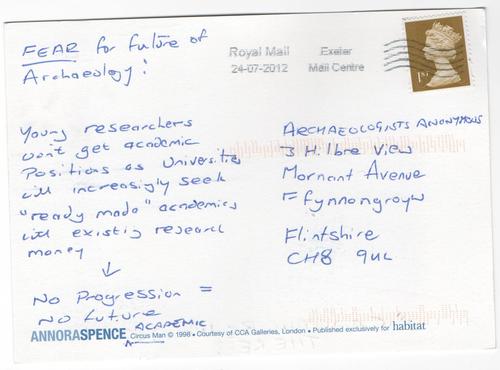 FEAR for future of
Archaeology!
Royal Mail Exeter
24-07-2012 Mail Centre
1st
Young researchers
won't get academic
Positions as Universities
will increasingly seek
"ready made" academics
with existing research
money
↓
No Progression =
No future
ACADEMIC
ARCHAEOLOGISTS ANONYMOUS
3 Hilbre View
Mornant Avenue
Ffynnongroyw
Flintshire
CH8 9UL
ANNORASPENCE Circus Man © 1998 • Courtesy of CCA Galleries, London • Published exclusively for habitat